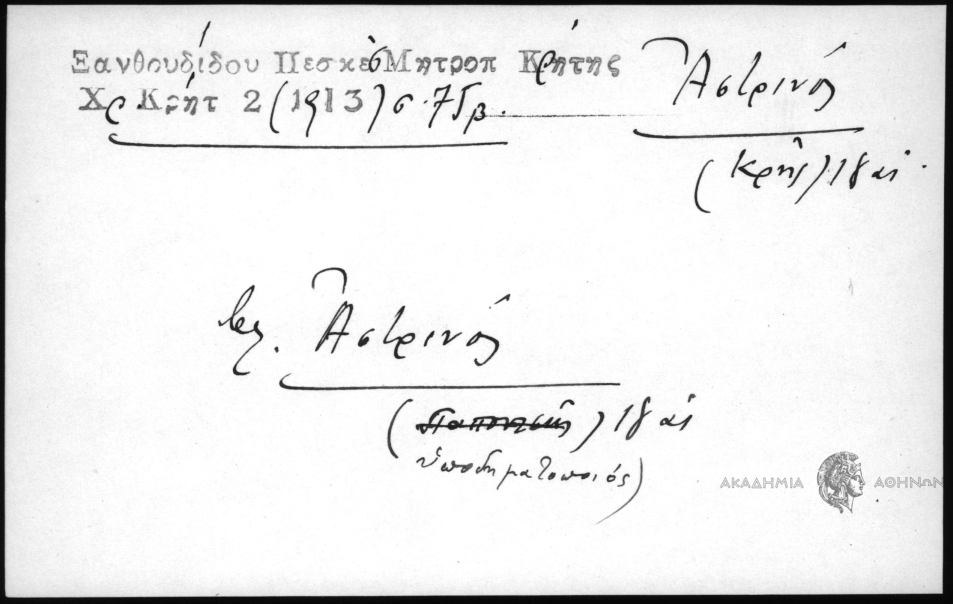 Ξανθουδίδου Πεσκέσ Μητροπ Κρήτης
Χρ. Κρήτ 2 (1913) σ. 75β.
Ἀστρινός
(Κρής) 18 αι.
Βλ. Ἀστρινός
18 αι
ὑποδηματοποιός)
ΑΚΑΔΗΜΙΑ ΑΘΗΝΩΝ